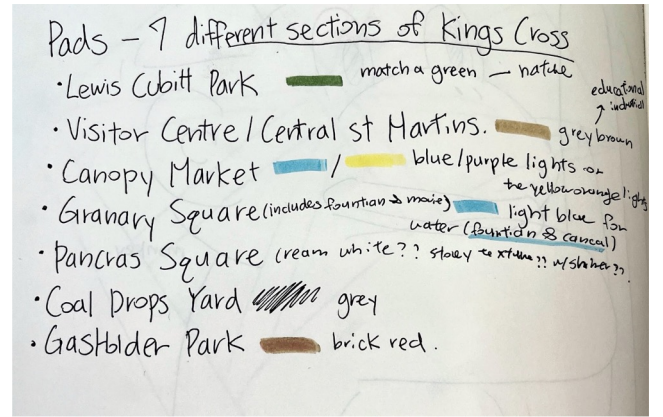 Pads – 7 different sections of Kings Cross
• Lewis Cubitt Park match a green – natche
educational
industrial
• Visitor Centre / Central St Martins. grey brown
• Canopy Market / blue/purple lights or
the yellow orange lights
• Granary Square (includes fountian & movie) light blue for
water (fountian & cancal)
• Pancras Square cream white?? stoney texture?? w/shimer??
• Coal Drops Yard grey
• GasHolder Park brick red.